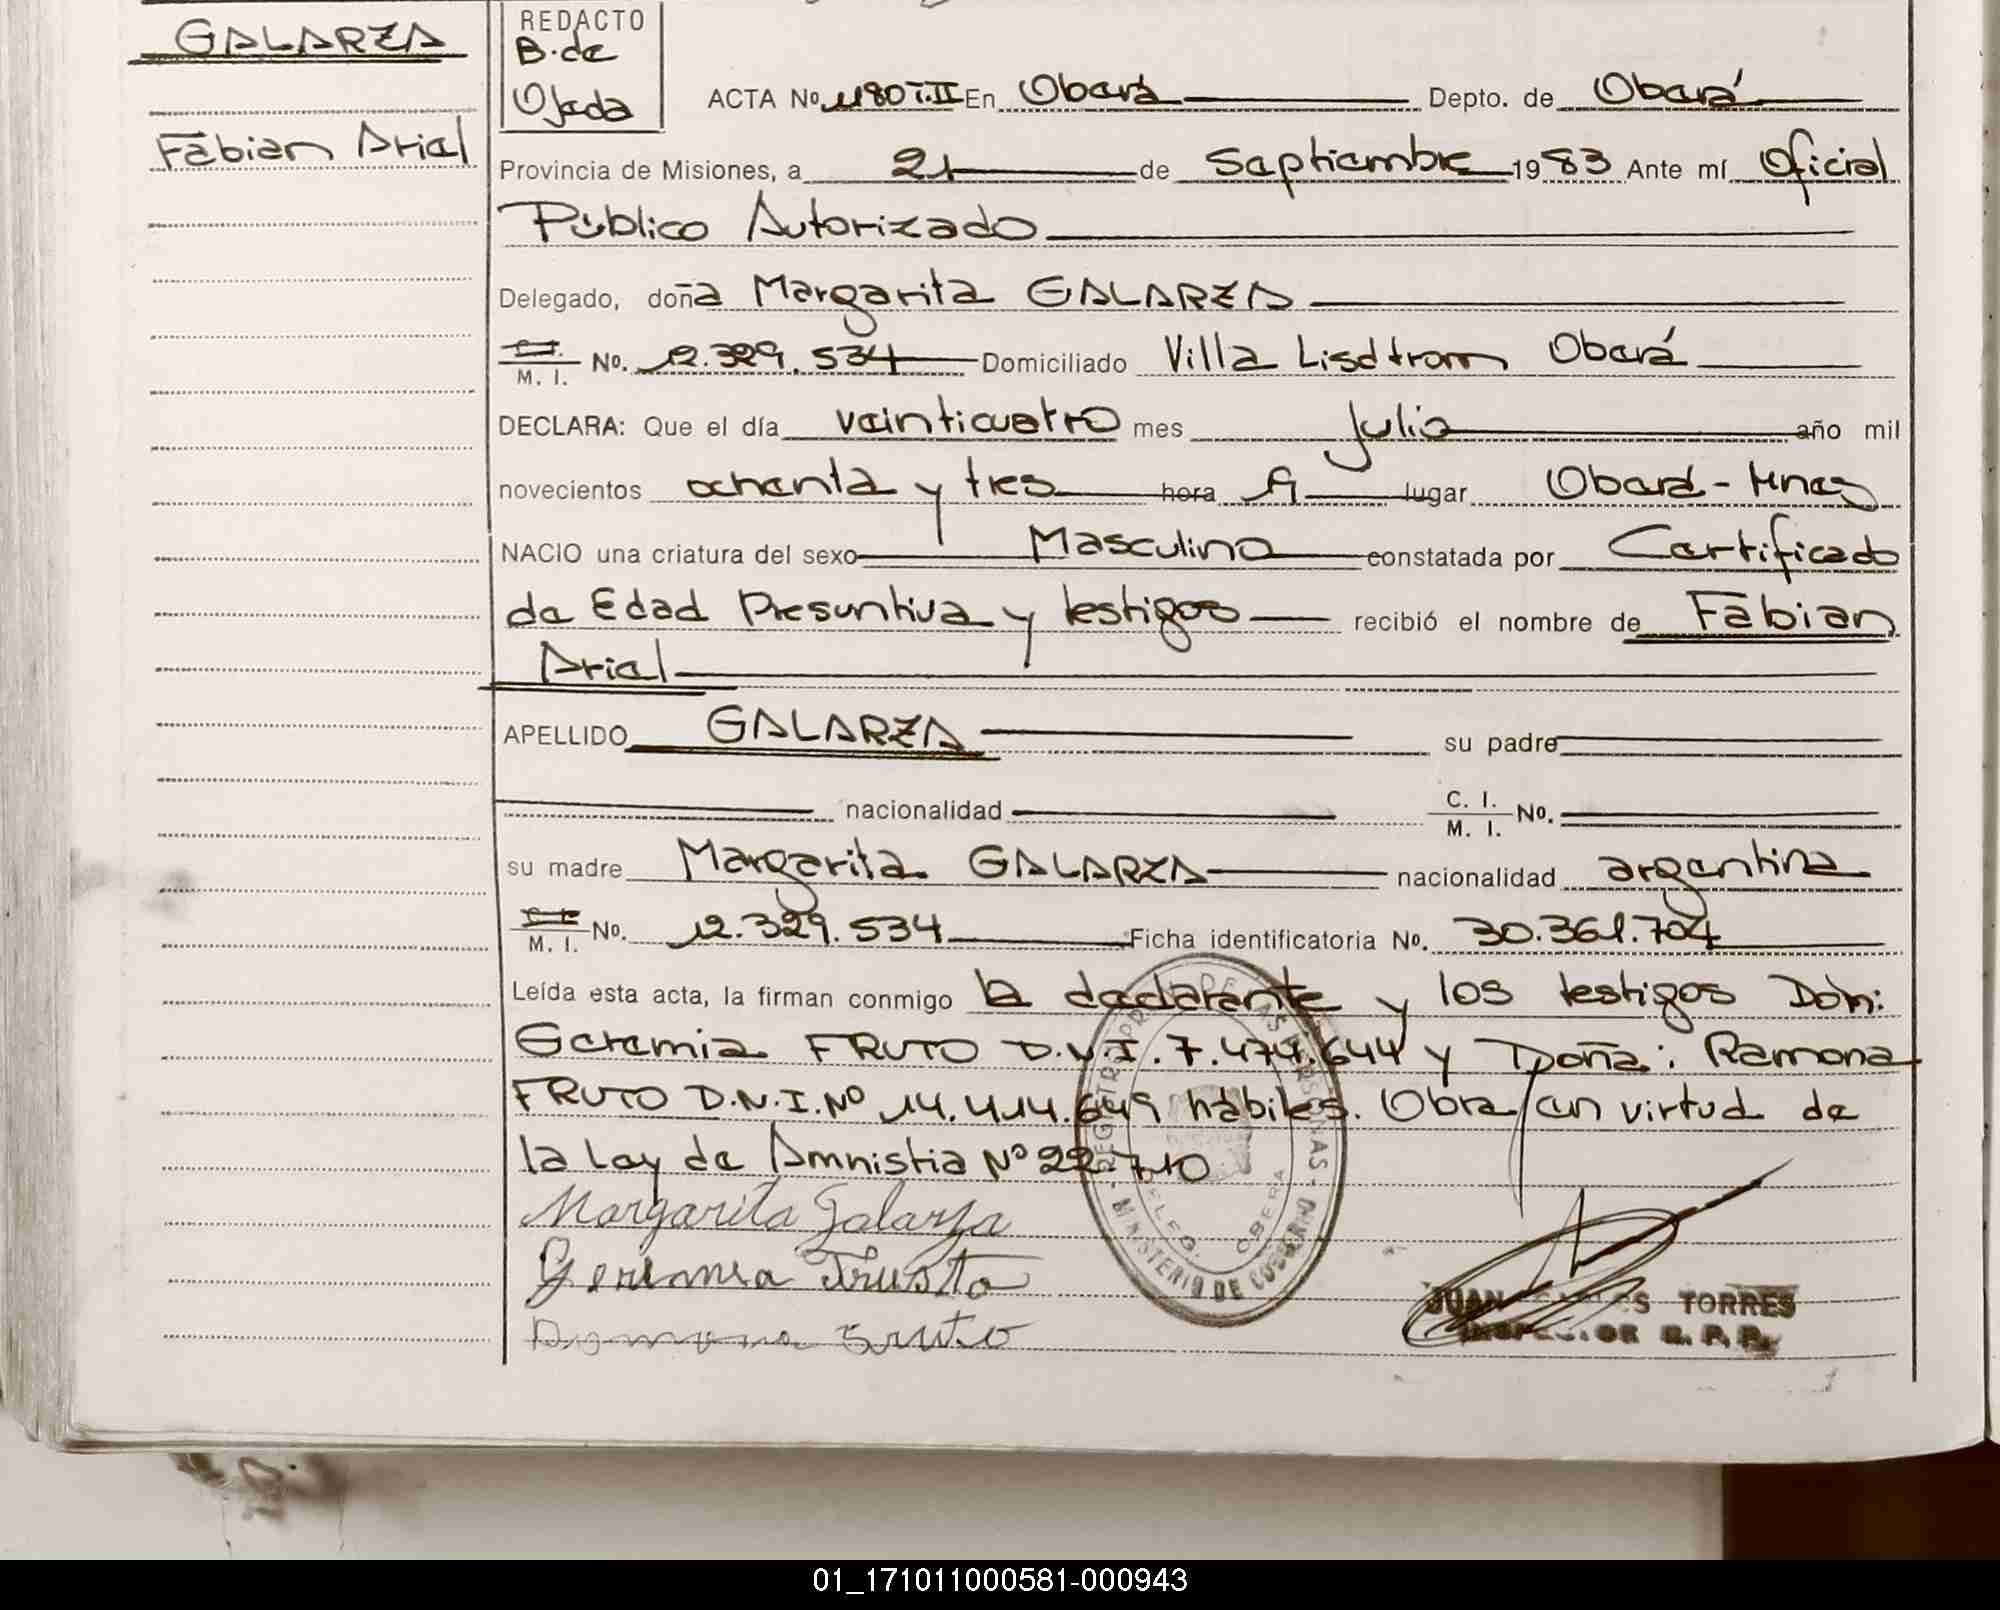 GALARZA
Fabian Ariel
REDACTO
B. de
Ojeda
ACTA No. 1180 T.II En Oberá Depto. de Oberá
Provincia de Misiones, a 21 de Septiembre 1983 Ante mí Oficial
Público Autorizado
Delegado, doña Margarita GALARZA
M. I. No. 12.329.534 Domiciliado Villa Lisdtrom Oberá
DECLARA: Que el día veinticuatro mes Julio año mil
novecientos ochenta y tres hora lugar Oberá - Mnes
NACIO una criatura del sexo Masculino constatada por Certificado
de Edad Presuntiva y testigos recibió el nombre de Fabian
Ariel
APELLIDO GALARZA su padre
nacionalidad C. I. M. I. No.
su madre Margarita GALARZA nacionalidad argentina
M. I. No. 12.329.534 Ficha identificatoria No. 30.361.704
Leída esta acta, la firman conmigo la declarante y los testigos Don:
Geremia FRUTO D.N.I. 7.474.644 y Doña: Ramona
FRUTO D.N.I. Nº 14.414.649 hábiles. Obra en virtud de
la Ley de Amnistia Nº 22.710
Margarita Galarza
Geremia Frusto
Ramona Fruto
REGISTRO PROV. DE LAS PERSONAS - MINISTERIO DE GOBIERNO -
DELEG. OBERA
JUAN CARLOS TORRES
INSPECTOR R. P. P.
01_171011000581-000943